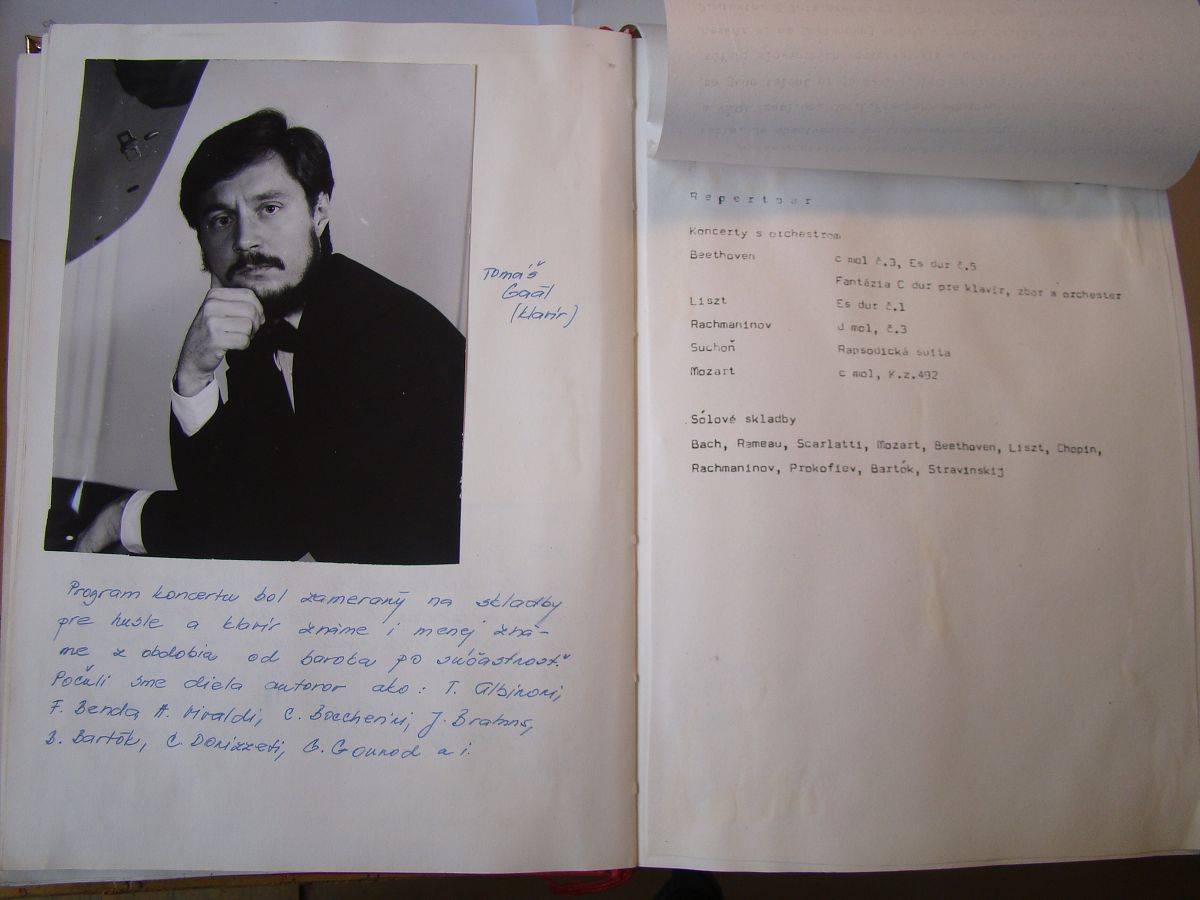 Tomáš
Gaál
(klavír)
Program koncertu bol zameraný na skladby
pre husle a klavír známe i menej zná-
me z obdobia od baroka po súčastnosť.
Počuli sme diela autorov ako: T. Albinoni,
F. Benda, A. Vivaldi, C. Boccherini, J. Brahms,
B. Bartók, C. Donizzeti, G. Gounod a i.
Repertoár
Koncerty s orchestrom
Beethoven c mol č.3, Es dur č.5
Fantázia C dur pre klavír, zbor a orchester
Liszt Es dur č.1
Rachmaninov d mol, č.3
Suchoň Rapsodická suita
Mozart c mol, K.z.492
Sólové skladby
Bach, Rameau, Scarlatti, Mozart, Beethoven, Liszt, Chopin,
Rachmaninov, Prokofiev, Bartók, Stravinskij